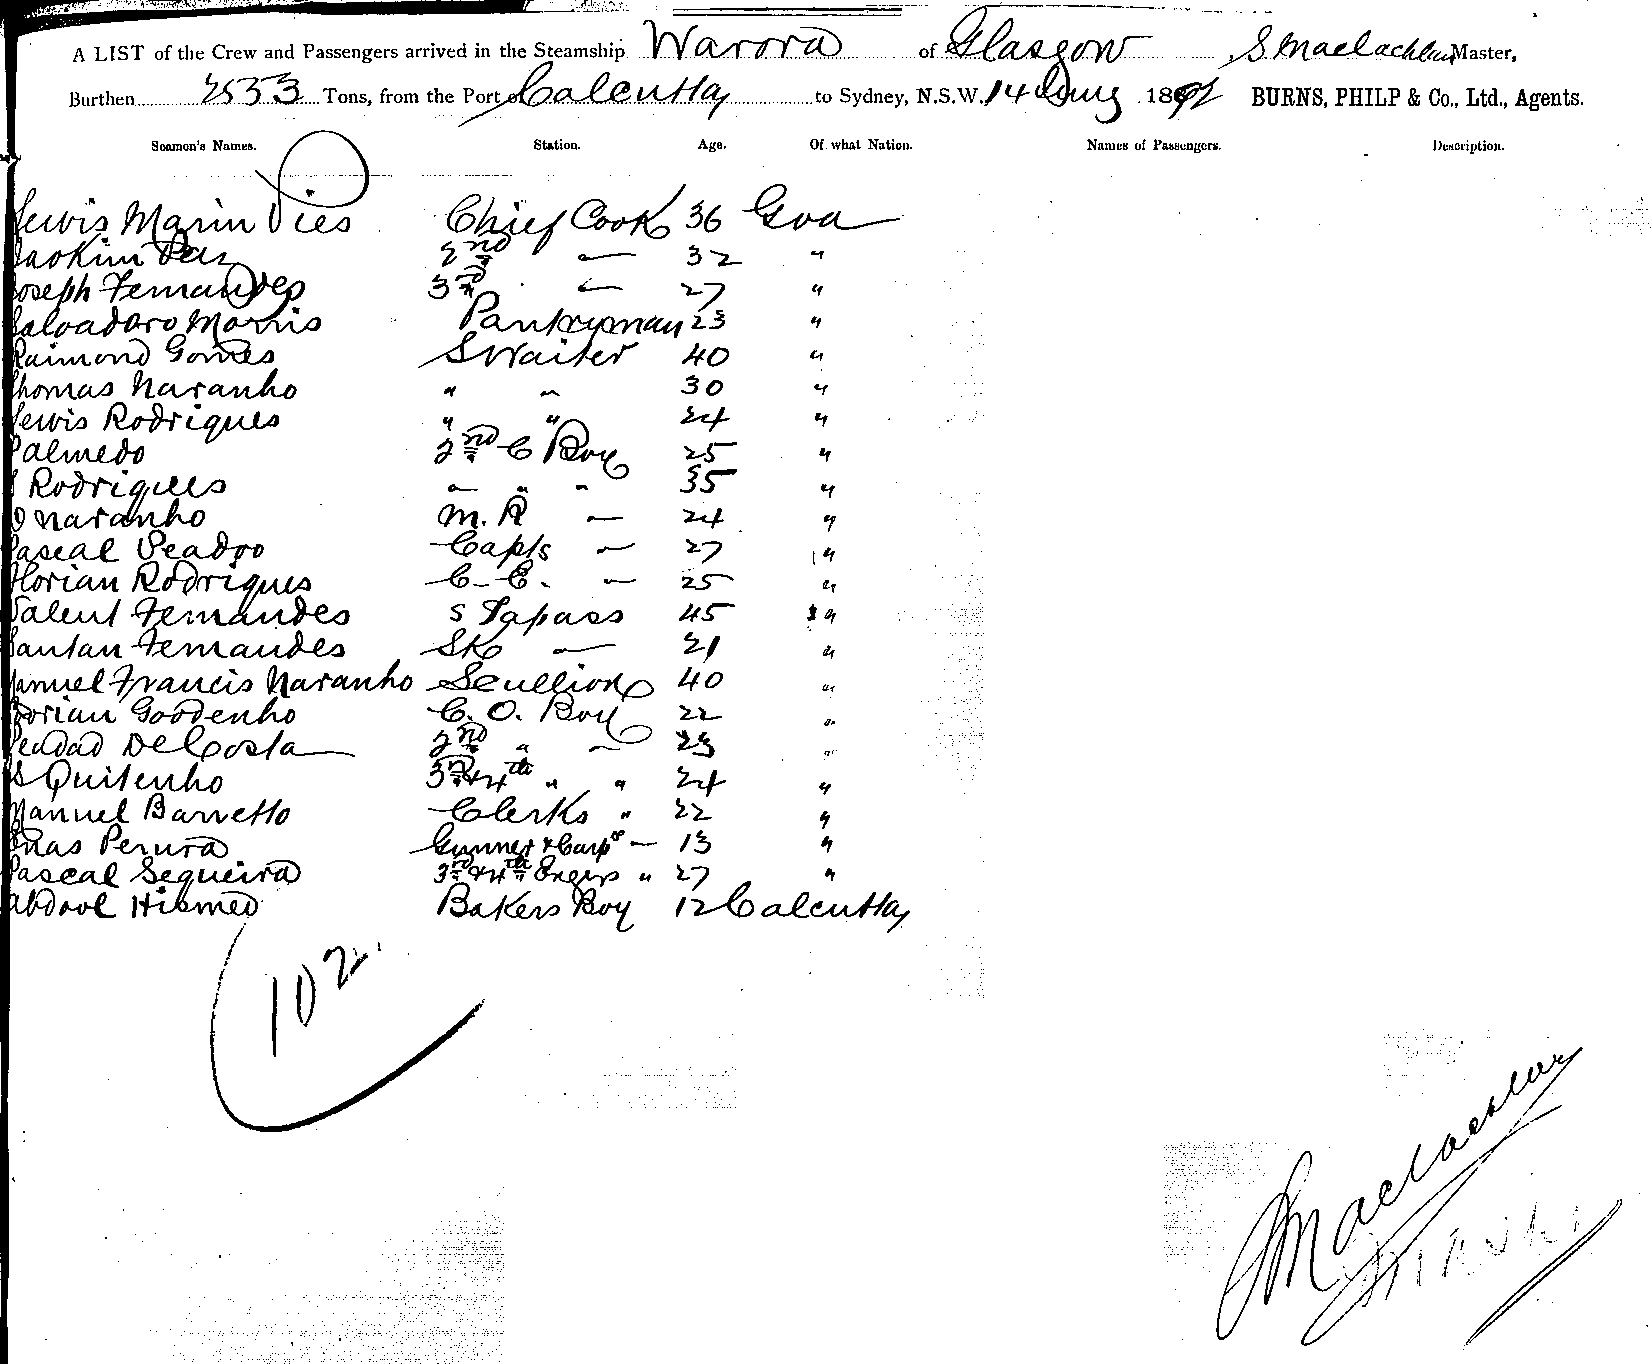 A LIST of the Crew and Passengers arrived in the Steamship Warora of Glasgow, S Maclachlan Master,
Burthen 2533 Tons, from the Port of Calcutta to Sydney, N.S.W. 14 Aug 1892 BURNS, PHILP & Co., Ltd., Agents.
Seamen's Names. Station. Age. Of what Nation. Names of Passengers. Description.
Lewis Marin Dies Chief Cook 36 Goa
2nd — 32 "
Joseph Fernandes 3rd — 27 "
Salvadoro Morris Pantryman 23 "
Raimond Gomes S Waiter 40 "
Thomas Naranho " " 30 "
Lewis Rodrigues " " 24 "
Palmedo 2nd C Boy 25 "
Rodrigues " " " 35 "
Naranho M. R — 24 "
Pascal Peadro Capts — 27 "
Florian Rodrigues C. C. — 25 "
Salent Fernandes S Topass 45 "
Santan Fernandes Sk — 21 "
Manuel Francis Naranho Scullion 40 "
Dorian Goodenho C. O. Boy 22 "
DeCosta 2nd " — 23 "
Quitenho 3rd & 4th " " 24 "
Manuel Barretto Clerks " 22 "
Perura Gunner & Carpr — 13 "
Pascal Sequeira 3rd & 4th Engrs " 27 "
Abdool Hismed Bakers Boy 12 Calcutta
102
S Maclachlan